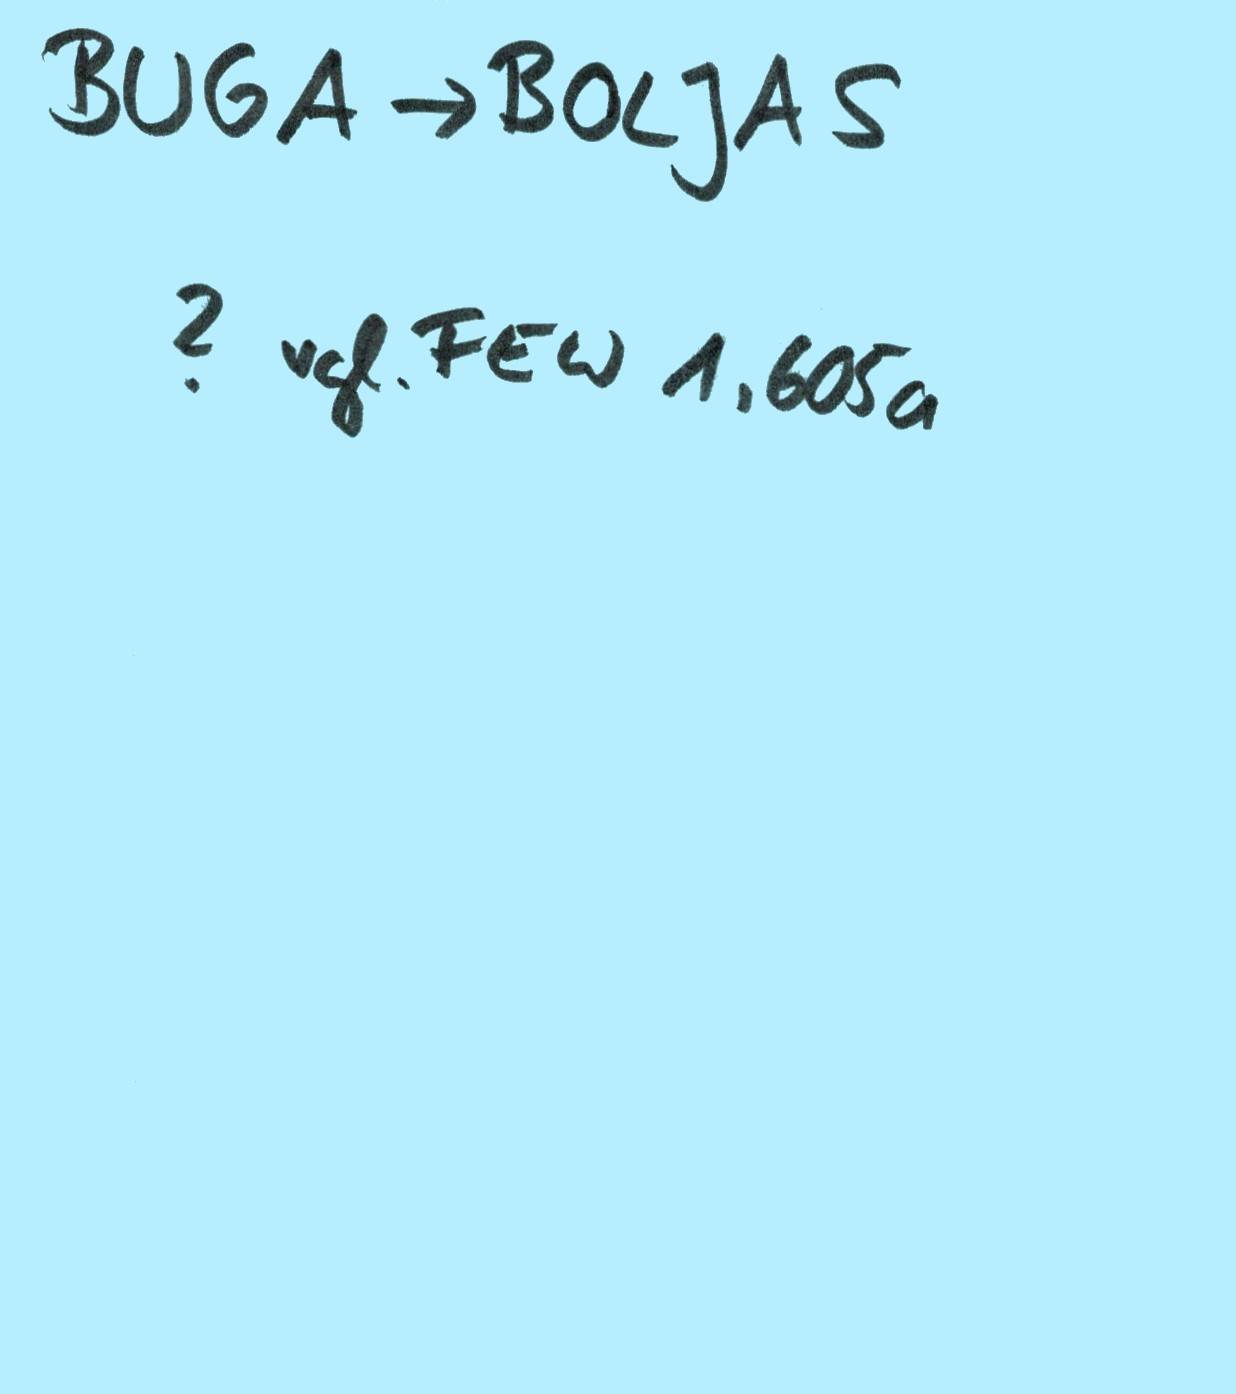 BUGA → BOLJAS
? vgl. FEW 1,605a